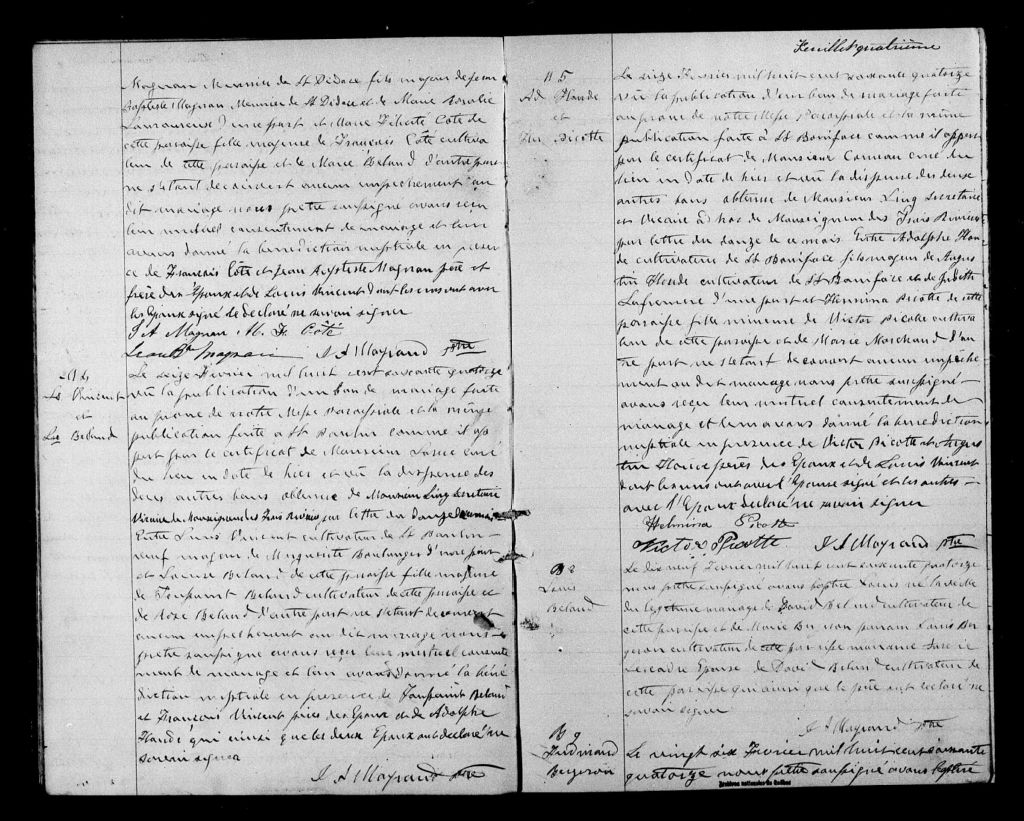 Magnan Meunier de St Didace fils majeur de Jean
Baptiste Magnan Meunier de St Didace et de Marie Rosalie
d'une part et Marie Félicité Coté de
cette paroisse fille majeure de François Coté cultiva
teur de cette paroisse et de Marie Beland d'autre part
ne s'étant découvert aucun empêchement au
dit mariage nous prêtre soussigné avons reçu
leur mutuel consentement de mariage et leur
avons donné la bénédiction nuptiale en présen
ce de François Côté et Jean Baptiste Magnan père et
frère des Epoux et de Louis Vincent dont les uns ont avec
les Epoux signé le declaré ne savoir signer
J A Magnan M. F. Côté
Magnan J A Mayrand ptre
Ls Vincent
et
Beland
Le seize Février mil huit cent soixante quatorze
vu la publication d'un ban de mariage faite
au prone de notre Messe Paroissiale et la même
publication faite à St comme il ap
pert par le certificat de Monsieur curé
du lieu en date de hier et vu la dispense des
deux autres bans obtenue de Monsieur Ling Secretaire
Vicaire de Monseigneur des Trois Rivières par lettre du douze
Entre Louis Vincent cultivateur de St
veuf majeur de Marguerite Boulanger d'une part
et Louise Beland de cette paroisse fille majeure
de Toussaint Beland cultivateur de cette paroisse et
de Rose Beland d'autre part ne s'étant découvert
aucun empêchement au dit mariage nous
prêtre soussigné avons reçu leur mutuel consente
ment de mariage et leur avons donné la béné
diction nuptiale en présence de Toussaint Beland
et François Vincent pères des Epoux et de Adolphe
Houde qui ainsi que les deux Epoux ont déclaré ne
savoir signer
J A Mayrand ptre
Feuillet quatrième
M 5
Ad Houde
et
Picotte
Le seize Février mil huit cent soixante quatorze
vu la publication d'un ban de mariage faite
au prone de notre Messe Paroissiale et la même
publication faite à St Boniface comme il appert
par le certificat de Monsieur curé du
lieu en date de hier et vu la dispense des deux
autres bans obtenue de Monsieur Ling Secretaire
et Vicaire ad hoc de Monseigneur des Trois Rivières
par lettre du douze le mois Entre Adolphe Hou
de cultivateur de St Boniface fils majeur de Augus
tin Houde cultivateur de St Boniface et de Judith
d'une part et Hermina Picotte de cette
paroisse fille mineure de Victor Picotte cultiva
teur de cette paroisse et de Marie Marchand d'au
tre part ne s'étant découvert aucun empêche
ment au dit mariage nous prêtre soussigné
avons reçu leur mutuel consentement de
mariage et leur avons donné la bénédiction
nuptiale en présence de Victor Picotte et Augus
tin Houde pères des Epoux et de Louis Vincent
dont les uns ont avec l'Epouse signé et les autres
avec l'Epoux déclaré ne savoir signer
Helmina Picotte
Victor Picotte J A Mayrand ptre
B 8
Louis
Beland
Le dix neuf Février mil huit cent soixante quatorze
nous prêtre soussigné avons baptisé Louis né la veille
du légitime mariage de David Beland cultivateur de
cette paroisse et de Marie Bergeron parrain Louis Ber
geron cultivateur de cette paroisse marraine
Epouse de David Beland cultivateur de
cette paroisse qui ainsi que le père ont déclaré ne
savoir signer
J A Mayrand ptre
B 9
Ferdinand
Bergeron
Le vingt six Février mil huit cent soixante
quatorze nous prêtre soussigné avons baptisé
Archives nationales du Québec